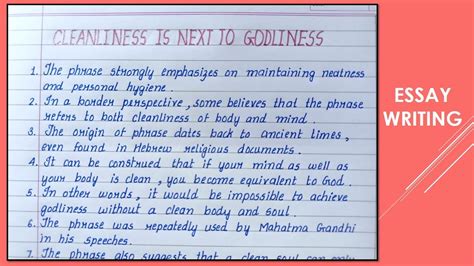 CLEANLINESS IS NEXT TO GODLINESS
1. The phrase strongly emphasizes on maintaining neatness
and personal hygiene.
2. In a borden perspective, some believes that the phrase
refers to both cleanliness of body and mind.
3. The origin of phrase dates back to ancient times,
even found in Hebrew religious documents.
4. It can be construed that if your mind as well as
your body is clean, you become equivalent to God.
5. In other words, it would be impossible to achieve
godliness without a clean body and soul.
6. The phrase was repeatedly used by Mahatma Grandhi
in his speeches.
7. The phrase also suggests that a clean soul can only
ESSAY
WRITING